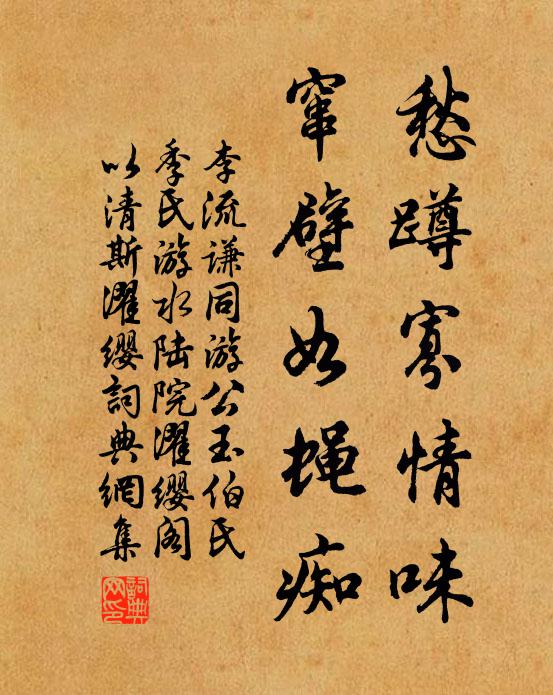 愁蹲寡情味
窜壁如蝇痴
李流谦同游公玉伯氏
季氏游水陆院濯缨阁
以清斯濯缨詞典網集
詞典网印